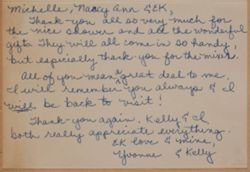 Michelle, Nancy Ann & EK,
Thank-you all so very much for
the nice shower and all the wonderful
gifts. They will all come in so handy,
but especially thank-you for the mixer.
All of you mean a great deal to me,
I will remember you always & I
will be back to visit!
Thank-you again, Kelly & I
both really appreciate everything.
EK love & mine,
Yvonne & Kelly